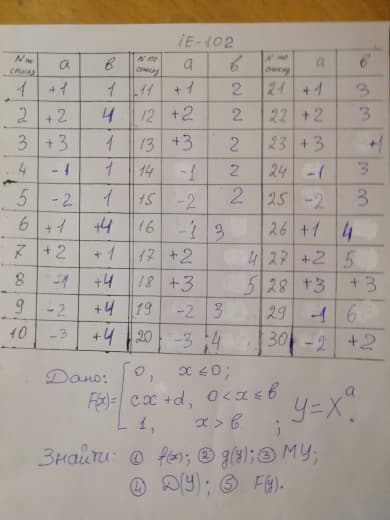 ІЕ-102
N по списку a в N по списку a в N по списку a в
1 +1 1 11 +1 2 21 +1 3
2 +2 4 12 +2 2 22 +2 3
3 +3 1 13 +3 2 23 +3 +1
4 -1 1 14 -1 2 24 -1 3
5 -2 1 15 -2 2 25 -2 3
6 +1 +4 16 -1 3 26 +1 4
7 +2 +1 17 +2 4 27 +2 5
8 -1 +4 18 +3 5 28 +3 +3
9 -2 +4 19 -2 3 29 -1 6
10 -3 +4 20 -3 4 30 -2 +2
Дано: 0, x ≤ 0;
F(x)= cx+d, 0 < x ≤ в
1, x > в ; Y = X^a.
Знайти: ① f(x); ② g(y); ③ MY;
④ D(Y); ⑤ F(y).